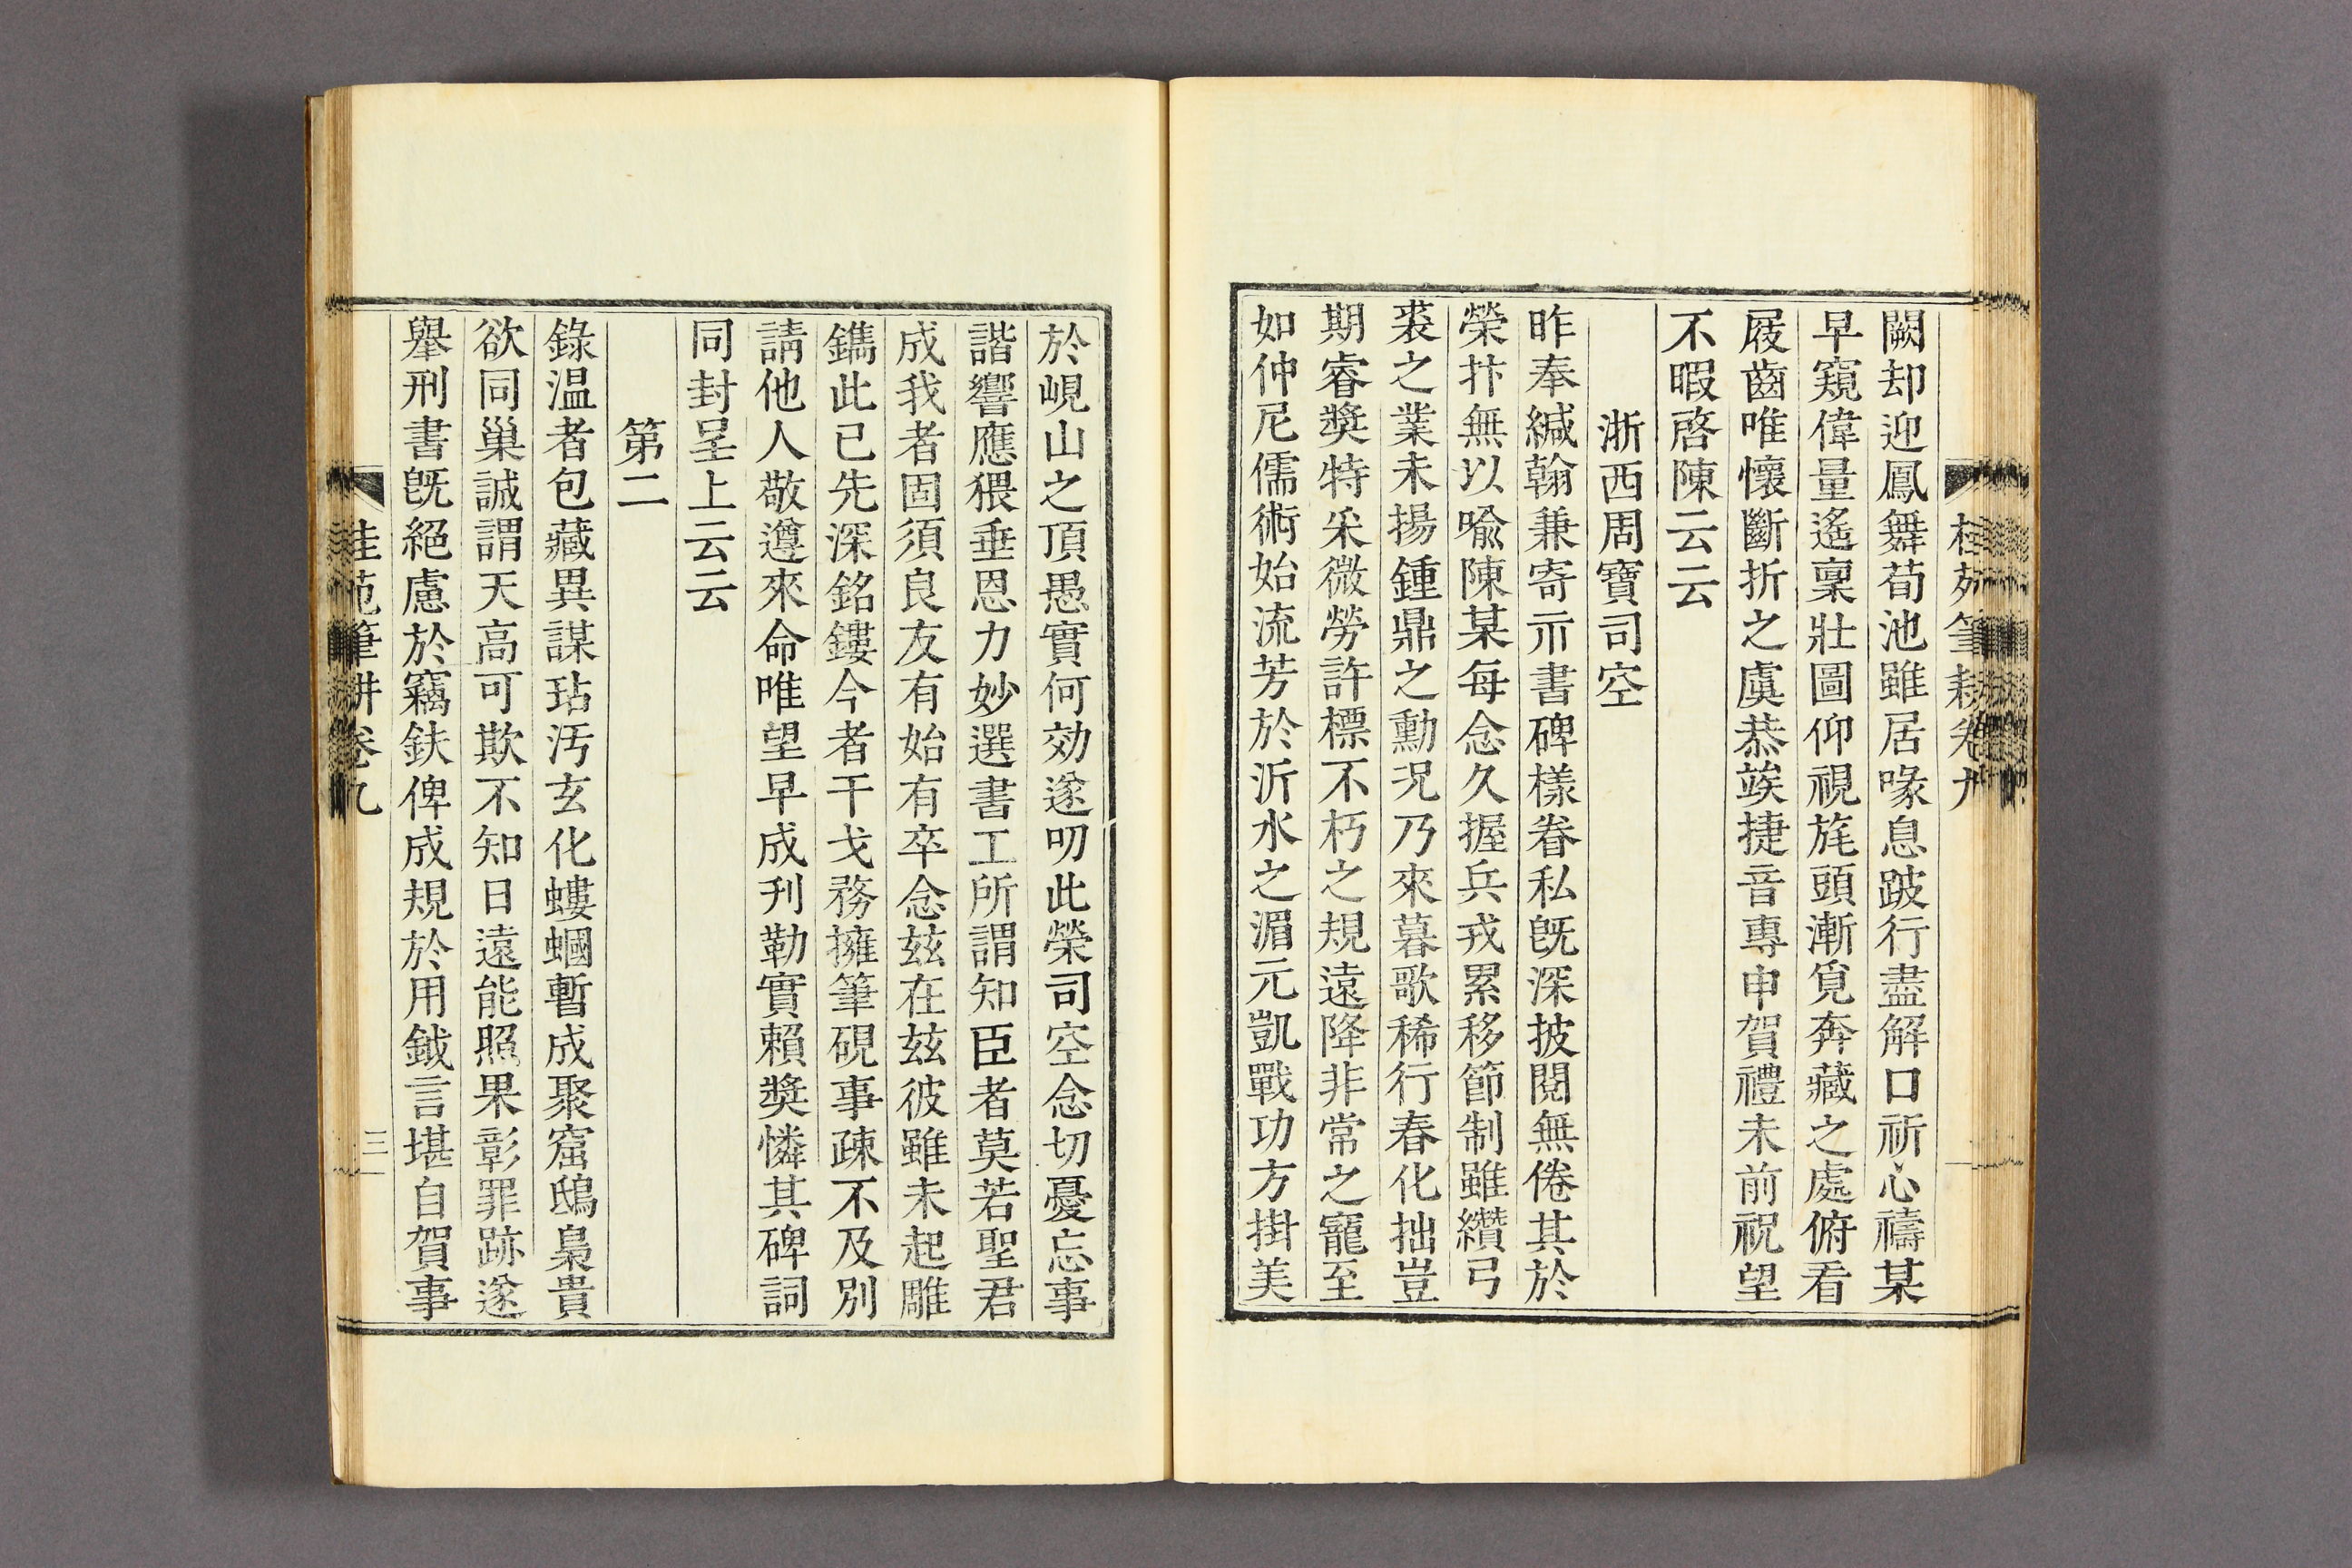 桂苑筆耕卷九
闕却迎鳳舞荀池雖居喙息跛行盡解口祈心禱某
早窺偉量遙稟壯圖仰視旄頭漸覓奔藏之處俯看
屐齒唯懷斷折之虞恭竢捷音專申賀禮未前祝望
不暇啓陳云云
浙西周寶司空
昨奉緘翰兼寄示書碑樣眷私旣深披閱無倦其於
榮抃無以喩陳某每念久握兵戎累移節制雖纘弓
裘之業未揚鍾鼎之勳況乃來暮歌稀行春化拙豈
期睿奬特采微勞許標不朽之規遠降非常之寵至
如仲尼儒術始流芳於沂水之湄元凱戰功方掛美
於峴山之頂愚實何効遂叨此榮司空念切憂忘事
諧響應猥垂恩力妙選書工所謂知臣者莫若聖君
成我者固須良友有始有卒念玆在玆彼雖未起雕
鐫此已先深銘鏤今者干戈務擁筆硯事疎不及別
請他人敬遵來命唯望早成刋勒實賴奬憐其碑詞
同封呈上云云
第二
錄温者包藏異謀玷汚玄化螻蟈暫成聚窟鴟梟貴
欲同巢誠謂天高可欺不知日遠能照果彰罪跡遂
擧刑書旣絕慮於竊鈇俾成規於用鉞言堪自賀事
桂苑筆耕卷九
三